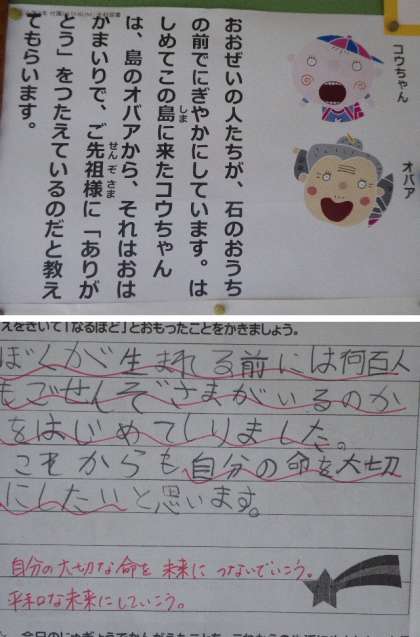 コウちゃん
オバア
おおぜいの人たちが、石のおうち
の前でにぎやかにしています。は
じめてこの島に来たコウちゃん
しま
は、島のオバアから、それはおは
かまいりで、ご先祖様に「ありが
せんぞさま
とう」をつたえているのだと教え
てもらいます。
えをきいて「なるほど」とおもったことをかきましょう。
ぼくが生まれる前には何百人
もごせんぞさまがいるのか
をはじめてしりました。
これからも自分の命を大切
にしたいと思います。
自分の大切な命を未来につないでいこう。
平和な未来にしていこう。